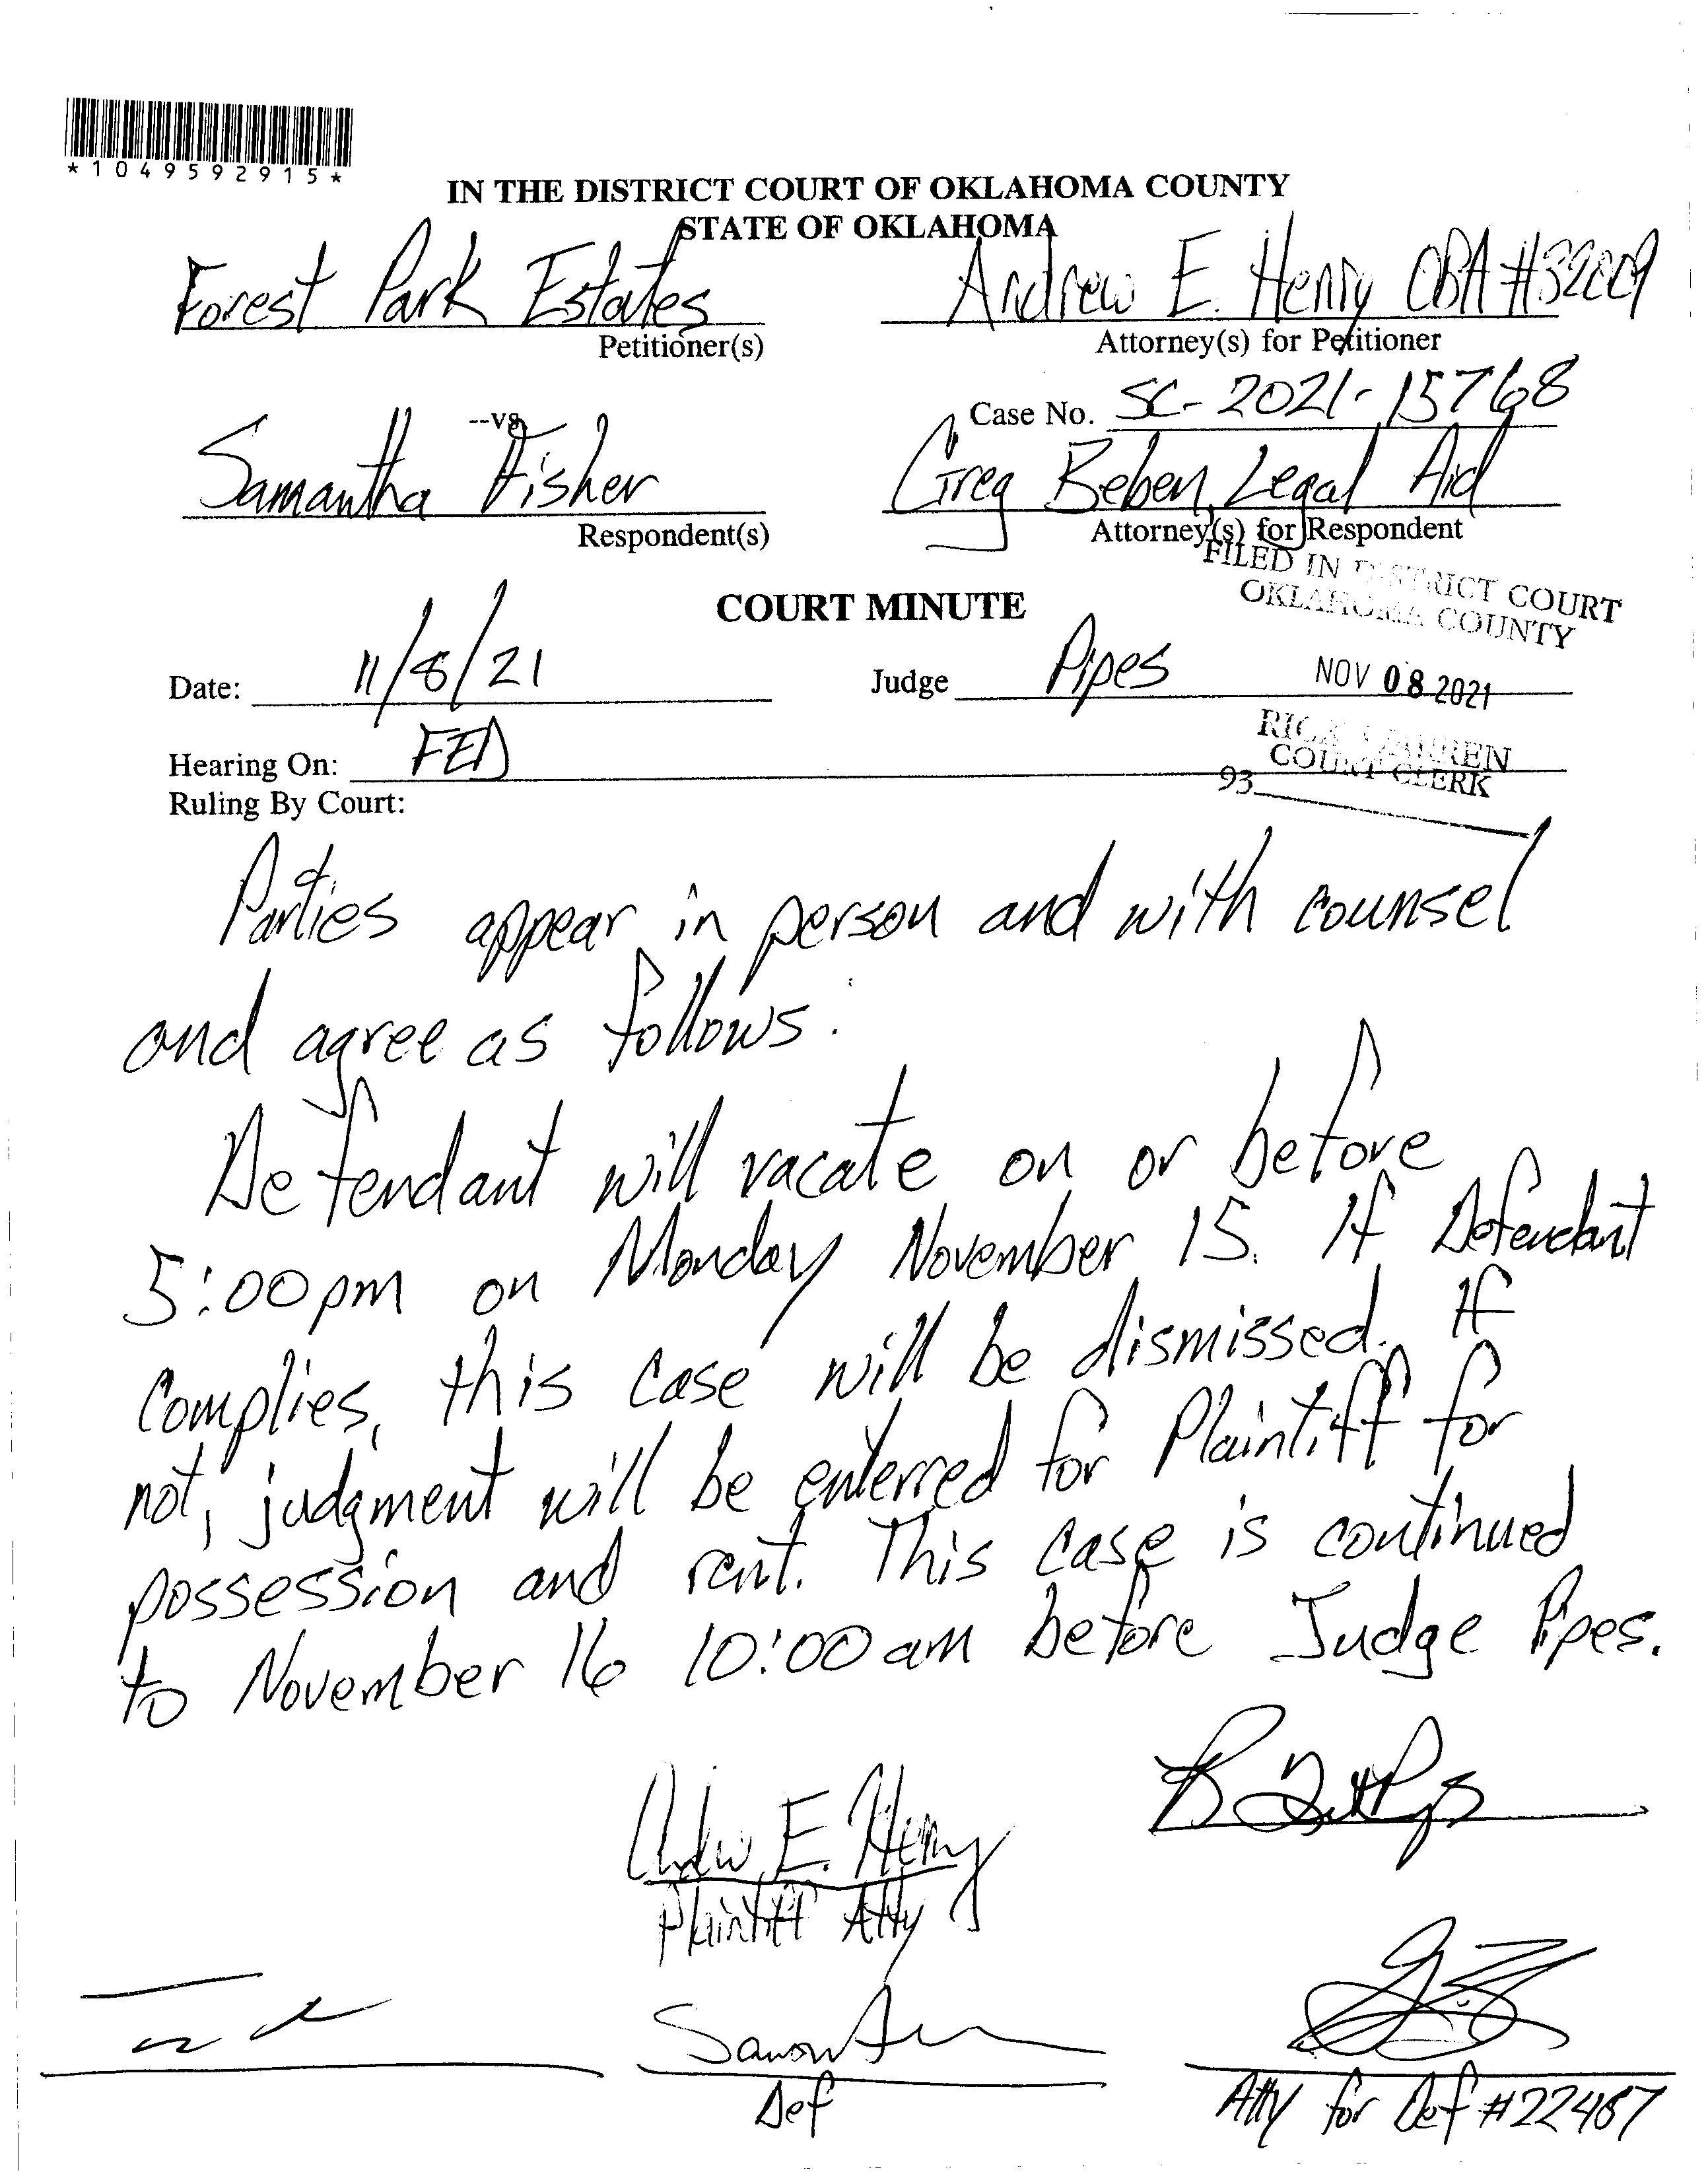 *1049592915*
IN THE DISTRICT COURT OF OKLAHOMA COUNTY
STATE OF OKLAHOMA
Forest Park Estates
Petitioner(s)
Andrew E. Henry OBA #32009
Attorney(s) for Petitioner
--vs
Case No. SC-2021-15768
Samantha Fisher
Respondent(s)
Greg Beben, Legal Aid
Attorney(s) for Respondent
FILED IN DISTRICT COURT
OKLAHOMA COUNTY
COURT MINUTE
Date: 11/8/21
Judge Pipes
NOV 08 2021
Hearing On: FED
RICK WARREN
COURT CLERK
93
Ruling By Court:
Parties appear in person and with counsel
and agree as follows:
Defendant will vacate on or before
5:00pm on Monday November 15. If Defendant
complies, this case will be dismissed. If
not, judgment will be enterred for Plaintiff for
possession and rent. This case is continued
to November 16 10:00 am before Judge Pipes.
Andrew E. Henry
Plaintiff Atty
Def
Atty for Def #22487